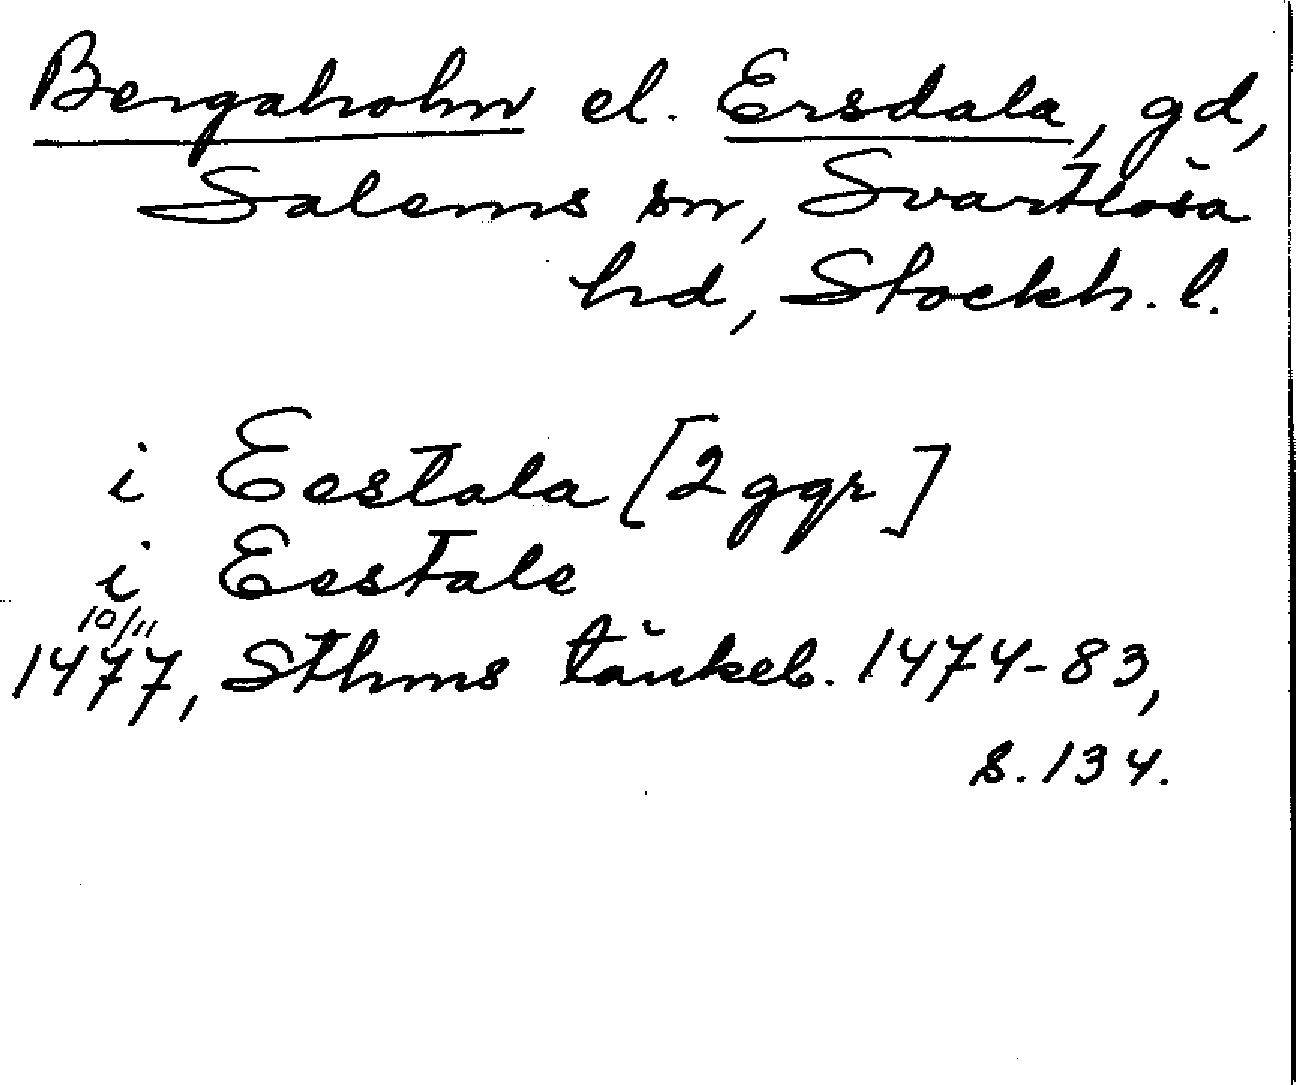 Bergaholm el. Ersdala, gd,
Salems sn, Svartlösa
hd, Stockh. l.
i Eestala [2 ggr]
i Eestale
10/11
1477, Sthms tänkeb. 1474-83,
s. 134.